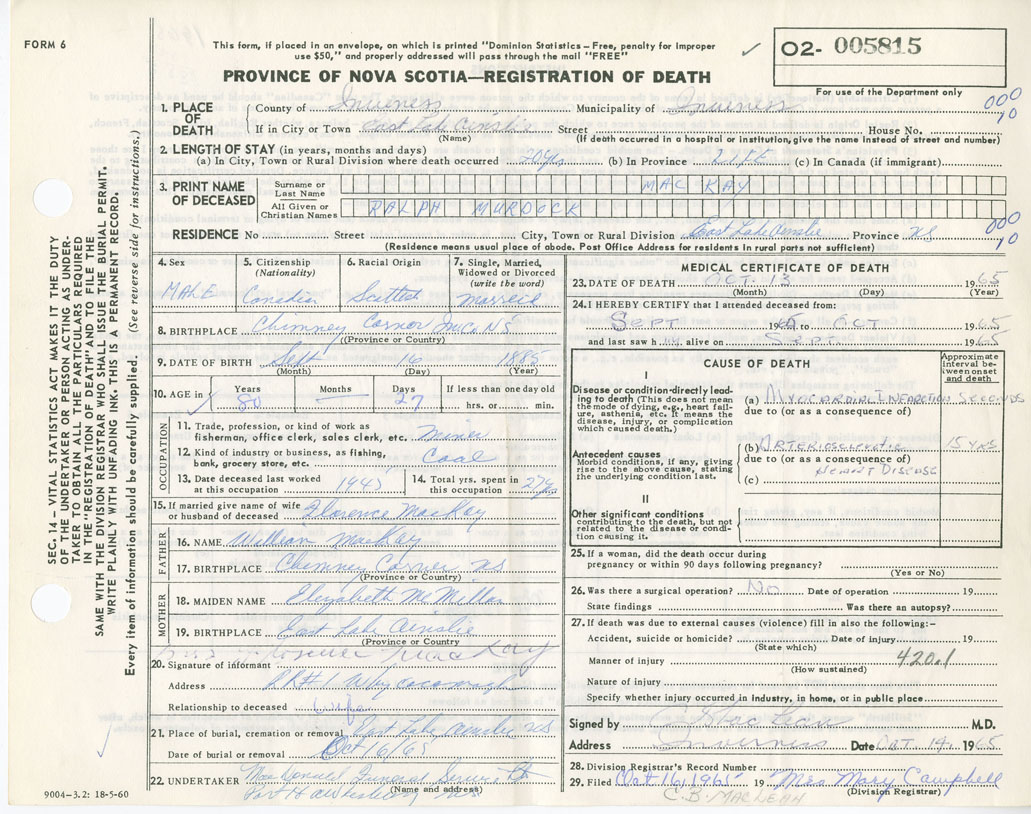 FORM 6
This form, if placed in an envelope, on which is printed "Dominion Statistics—Free, penalty for improper
use $50," and properly addressed will pass through the mail "FREE"
✓ 02- 005815
PROVINCE OF NOVA SCOTIA—REGISTRATION OF DEATH
For use of the Department only
1. PLACE OF DEATH
County of Inverness Municipality of Inverness
000
10
If in City or Town East Lake Ainslie Street House No.
(Name) (If death occurred in a hospital or institution, give the name instead of street and number)
2. LENGTH OF STAY (in years, months and days)
(a) In City, Town or Rural Division where death occurred 20 yrs (b) In Province LIFE (c) In Canada (if immigrant)
3. PRINT NAME OF DECEASED
Surname or Last Name MAC KAY
All Given or Christian Names RALPH MURDOCK
RESIDENCE No Street City, Town or Rural Division East Lake Ainslie Province NS
000
10
(Residence means usual place of abode. Post Office Address for residents in rural parts not sufficient)
SEC. 14 – VITAL STATISTICS ACT MAKES IT THE DUTY
OF THE UNDERTAKER OR PERSON ACTING AS UNDER-
TAKER TO OBTAIN ALL THE PARTICULARS REQUIRED
IN THE "REGISTRATION OF DEATH" AND TO FILE THE
SAME WITH THE DIVISION REGISTRAR WHO SHALL ISSUE THE BURIAL PERMIT.
WRITE PLAINLY WITH UNFADING INK-THIS IS A PERMANENT RECORD.
Every item of information should be carefully supplied. (See reverse side for instructions.)
4. Sex
MALE
5. Citizenship
(Nationality)
Canadian
6. Racial Origin
Scottish
7. Single, Married,
Widowed or Divorced
(write the word)
Married
8. BIRTHPLACE Chimney Corner Inv Co NS
(Province or Country)
9. DATE OF BIRTH Sept 16 1885
(Month) (Day) (Year)
10. AGE in
Years Months Days If less than one day old
✓ 80 — 27 hrs. or min.
OCCUPATION
11. Trade, profession, or kind of work as
fisherman, office clerk, sales clerk, etc. Miner
12. Kind of industry or business, as fishing,
bank, grocery store, etc. Coal
13. Date deceased last worked
at this occupation
14. Total yrs. spent in
this occupation 27 yrs
15. If married give name of wife
or husband of deceased Florence MacKay
FATHER
16. NAME William MacKay
17. BIRTHPLACE Chimney Corner NS
(Province or Country)
MOTHER
18. MAIDEN NAME Elizabeth McMillan
19. BIRTHPLACE East Lake Ainslie
(Province or Country)
20. Signature of informant Mrs Florence MacKay
Address RR#1 Whycocomagh
Relationship to deceased wife
21. Place of burial, cremation or removal East Lake Ainslie NS
Date of burial or removal Oct 16/65
22. UNDERTAKER MacDonald Funeral Service
Port Hawkesbury NS
(Name and address)
9004-3.2: 18-5-60
MEDICAL CERTIFICATE OF DEATH
23. DATE OF DEATH OCT. 13 1965
(Month) (Day) (Year)
24. I HEREBY CERTIFY that I attended deceased from:
SEPT 1965 to OCT 1965
and last saw him alive on SEPT 1965
CAUSE OF DEATH
Approximate
interval be-
tween onset
and death
I
Disease or condition directly lead-
ing to death (This does not mean
the mode of dying, e.g., heart fail-
ure, asthenia, etc. It means the
disease, injury, or complication
which caused death.)
(a) MYOCARDIAL INFARCTION SECONDS
due to (or as a consequence of)
Antecedent causes
Morbid conditions, if any, giving
rise to the above cause, stating
the underlying condition last.
(b) ARTERIOSCLEROTIC 15 YRS
due to (or as a consequence of)
HEART DISEASE
(c)
II
Other significant conditions
contributing to the death, but not
related to the disease or condi-
tion causing it.
25. If a woman, did the death occur during
pregnancy or within 90 days following pregnancy?
(Yes or No)
26. Was there a surgical operation? No Date of operation 19
State findings Was there an autopsy?
27. If death was due to external causes (violence) fill in also the following:–
Accident, suicide or homicide? Date of injury 19
(State which)
Manner of injury 420.1
(How sustained)
Nature of injury
Specify whether injury occurred in industry, in home, or in public place
Signed by MacLean M.D.
Address Inverness Date Oct. 14, 1965
28. Division Registrar's Record Number
29. Filed Oct 16, 1965 19 Mrs Mary Campbell
(Division Registrar)
C.B. MACLEAN